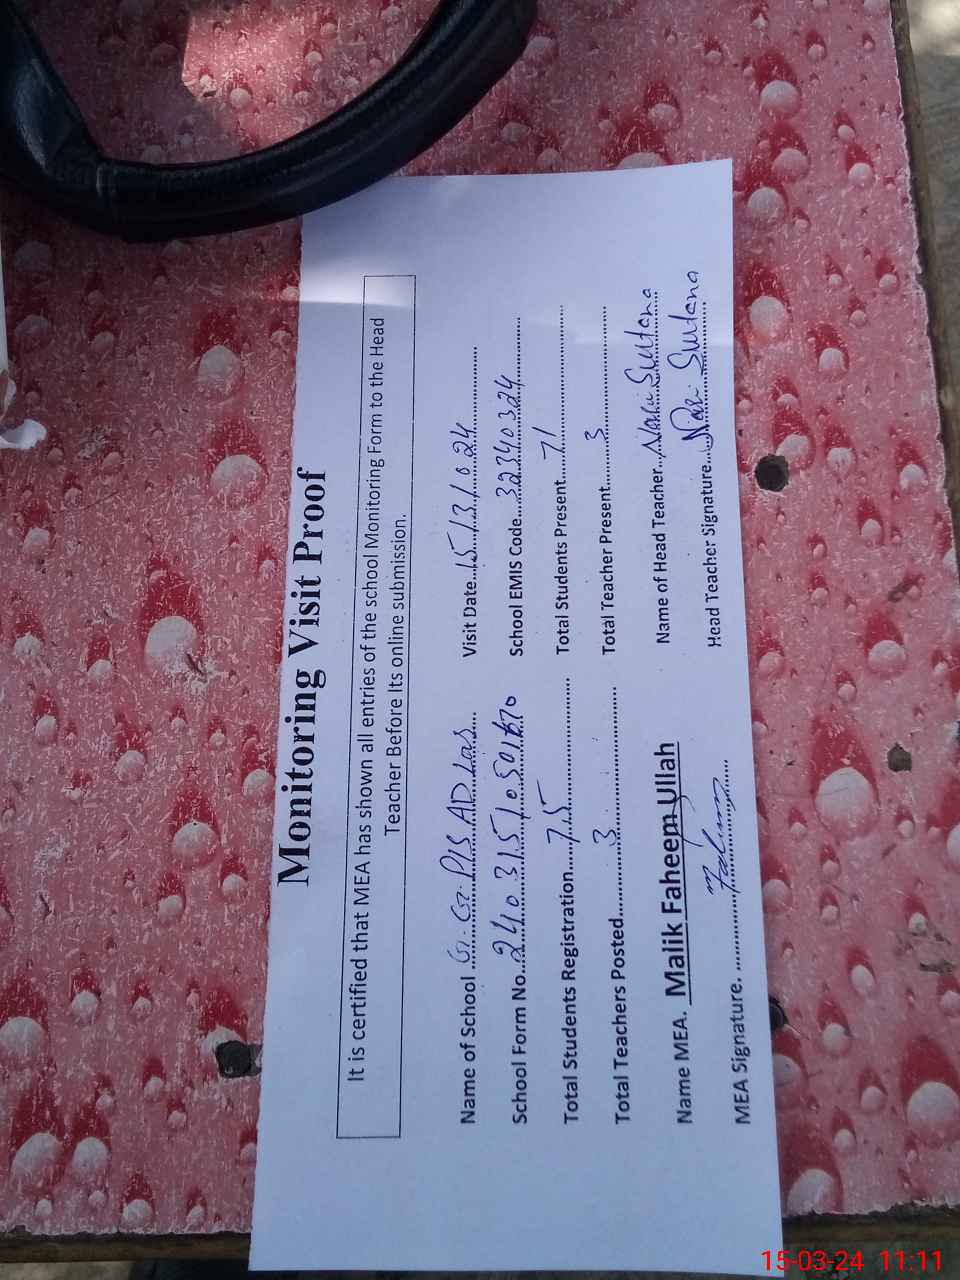 Monitoring Visit Proof
It is certified that MEA has shown all entries of the school Monitoring Form to the Head
Teacher Before Its online submission.
Name of School G.G.P/S AD Las Visit Date 15/3/2024
School Form No. 24031510501670 School EMIS Code 32240324
Total Students Registration 75 Total Students Present 71
Total Teachers Posted 3 Total Teacher Present 3
Name MEA. Malik Faheem Ullah Name of Head Teacher Sultana
MEA Signature. Head Teacher Signature Sultana
15-03-24 11:11